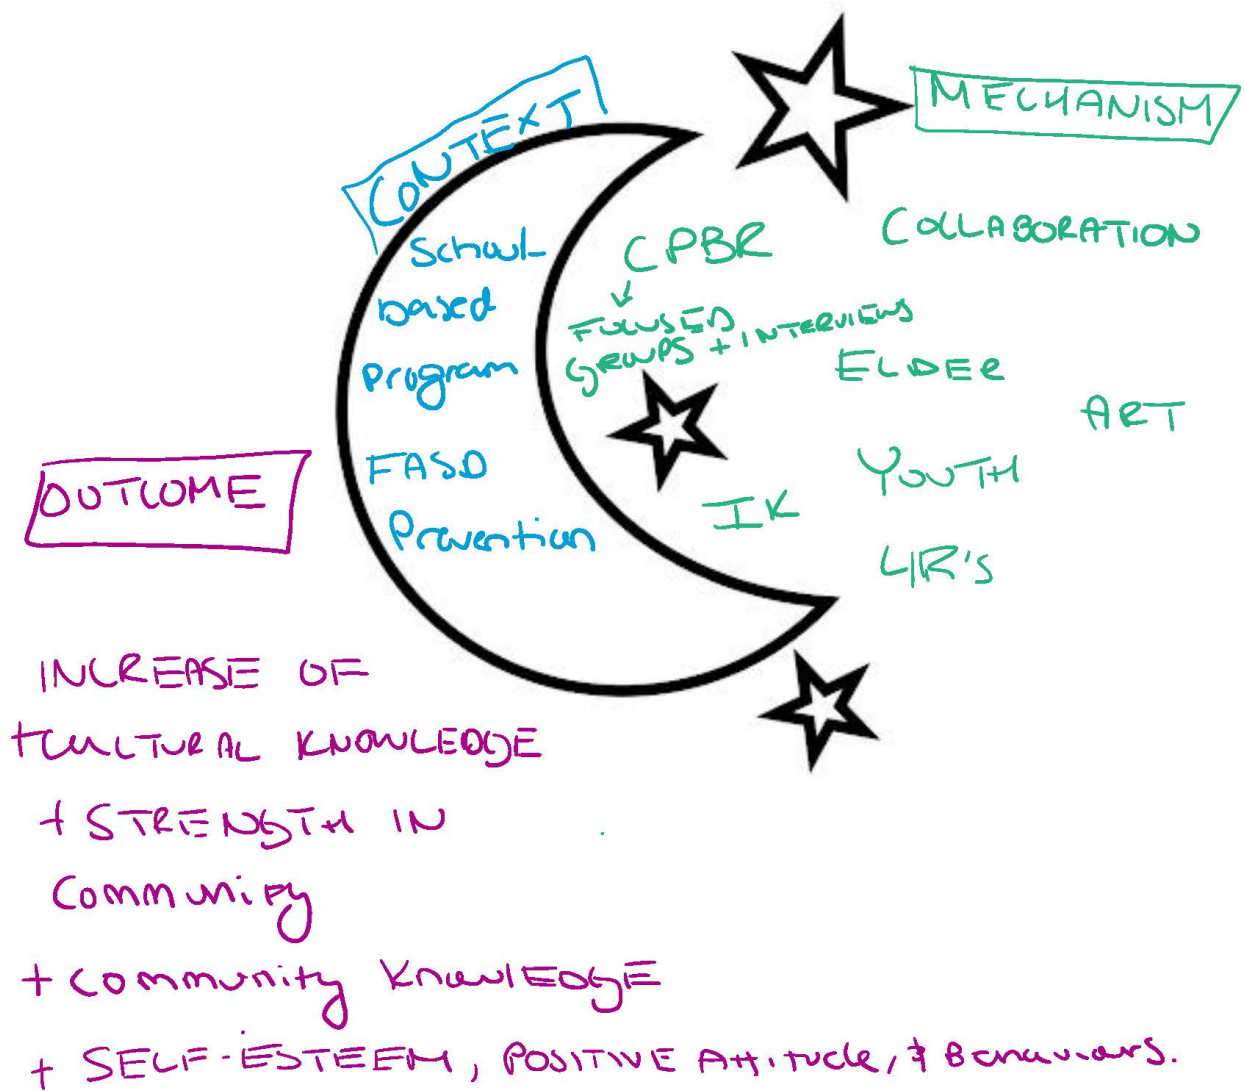 CONTEXT
School-
based
Program
FASD
Prevention
MECHANISM
COLLABORATION
CPBR
FOCUSED
GROUPS + INTERVIEWS
ELDER
ART
YOUTH
IK
4R'S
OUTCOME
INCREASE OF
+ CULTURAL KNOWLEDGE
+ STRENGTH IN
Community
+ Community KnowlEDGE
+ SELF-ESTEEM, POSITIVE Attitude, & Behaviours.